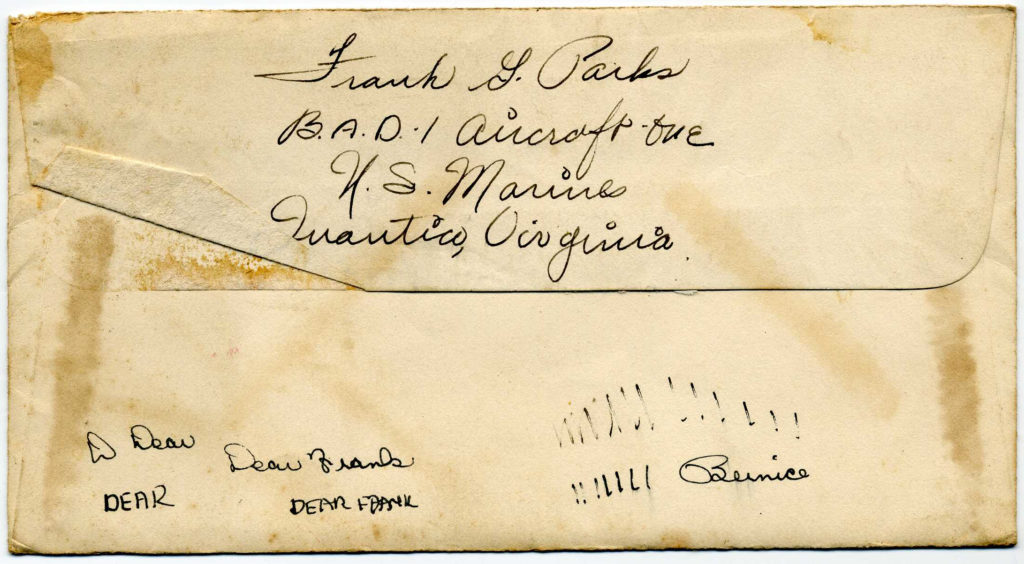 Frank G. Parks
B.A.D.-1 Aircraft-One
U. S. Marines
Quantico, Virginia.
D Dear
Dear Frank
DEAR
DEAR FRANK
Bernice